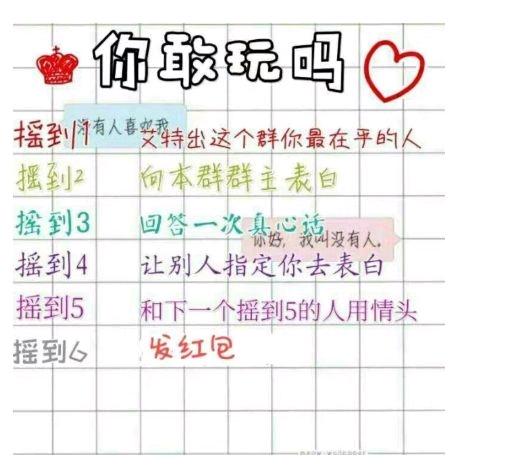 你敢玩吗
没有人喜欢我
摇到1 艾特出这个群你最在乎的人
摇到2 向本群群主表白
摇到3 回答一次真心话
你好,我叫没有人.
摇到4 让别人指定你去表白
摇到5 和下一个摇到5的人用情头
摇到6 发红包